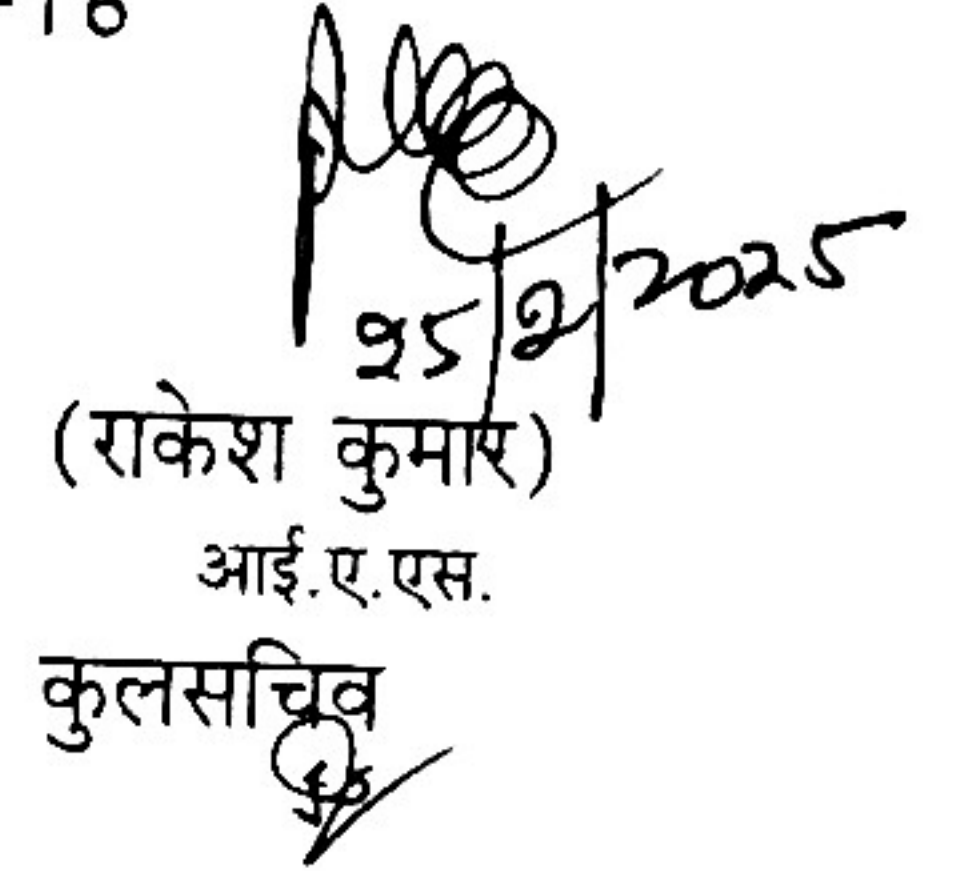 25/2/2025
(राकेश कुमार)
आई.ए.एस.
कुलसचिव